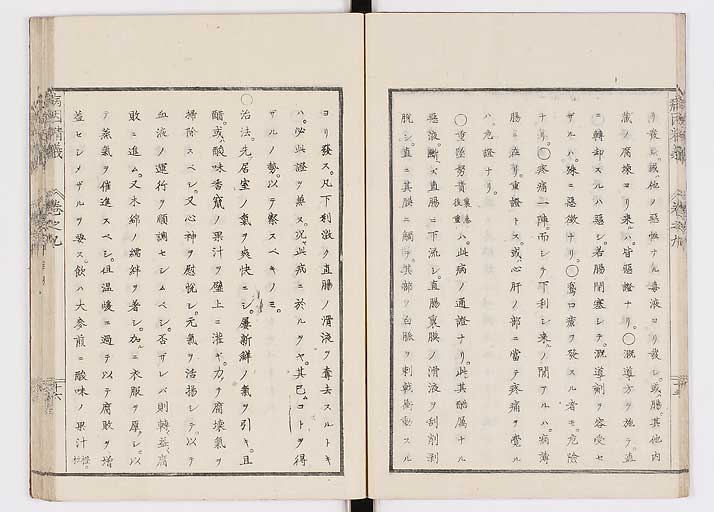 ヨリ發ス。或ハ他ノ惡性ナル毒液ヨリ發シ。或ハ腸。其他内
藏ノ腐壞ヨリ來ルハ。皆惡證ナリ。〇漑導方ヲ施テ。直
ニ轉却スルハ惡シ。若腸閉塞シテ。漑導劑ヲ容受セ
ザルハ。殊ニ惡徴ナリ。〇鵞口瘡ヲ發スル者モ。危險
ナリ。〇疼痛一陣。而シテ下利シ來ルノ間アルハ。病薄
腸ニ在リ。重證トス。或ハ心肝ノ部ニ當テ疼痛ヲ覺ル
ハ。危證ナリ。
〇重墜努責裏急後重ハ。此病ノ通證ナリ。此其酷厲ナル
惡液。斷ヘズ直腸ニ下流シ。直腸裏膜ノ滑液ヲ刮削剥
脫シ。直ニ其膜ニ觸テ。其部ヲ白脈ヲ刺戟衝動スル
病因精義
巻之九
ヨリ發ス。凡下利激ク直腸ノ滑液ヲ奪去スルトキ
ハ。必此證ヲ兼ス。況ヤ此病ニ於ルヲヤ。其已ムコトヲ得
ザルノ勢。以テ察スベキノミ。
〇治法。先居室ノ氣ヲ爽快ニシ。屢新鮮ノ氣ヲ引キ。且
醋。或ハ酸味香竄ノ果汁ヲ壁上ニ灌ギ。力ヲ腐壞氣ヲ
掃除スベシ。又心神ヲ慰悅シ。元氣ヲ活揚シテ。以テ
血液ノ運行ヲ順調セシムベシ。否ザレバ則轉益腐
敗ニ進ム。又木綿ノ襦袢ヲ著シ。加ルニ衣服ヲ厚シ。以
テ蒸氣ヲ催進スベシ。但温暖ニ過テ以テ腐敗ヲ增
益セシメザルヲ要ス。飲ハ大麥煎ニ酸味ノ果汁
病因精義
巻之九
十六